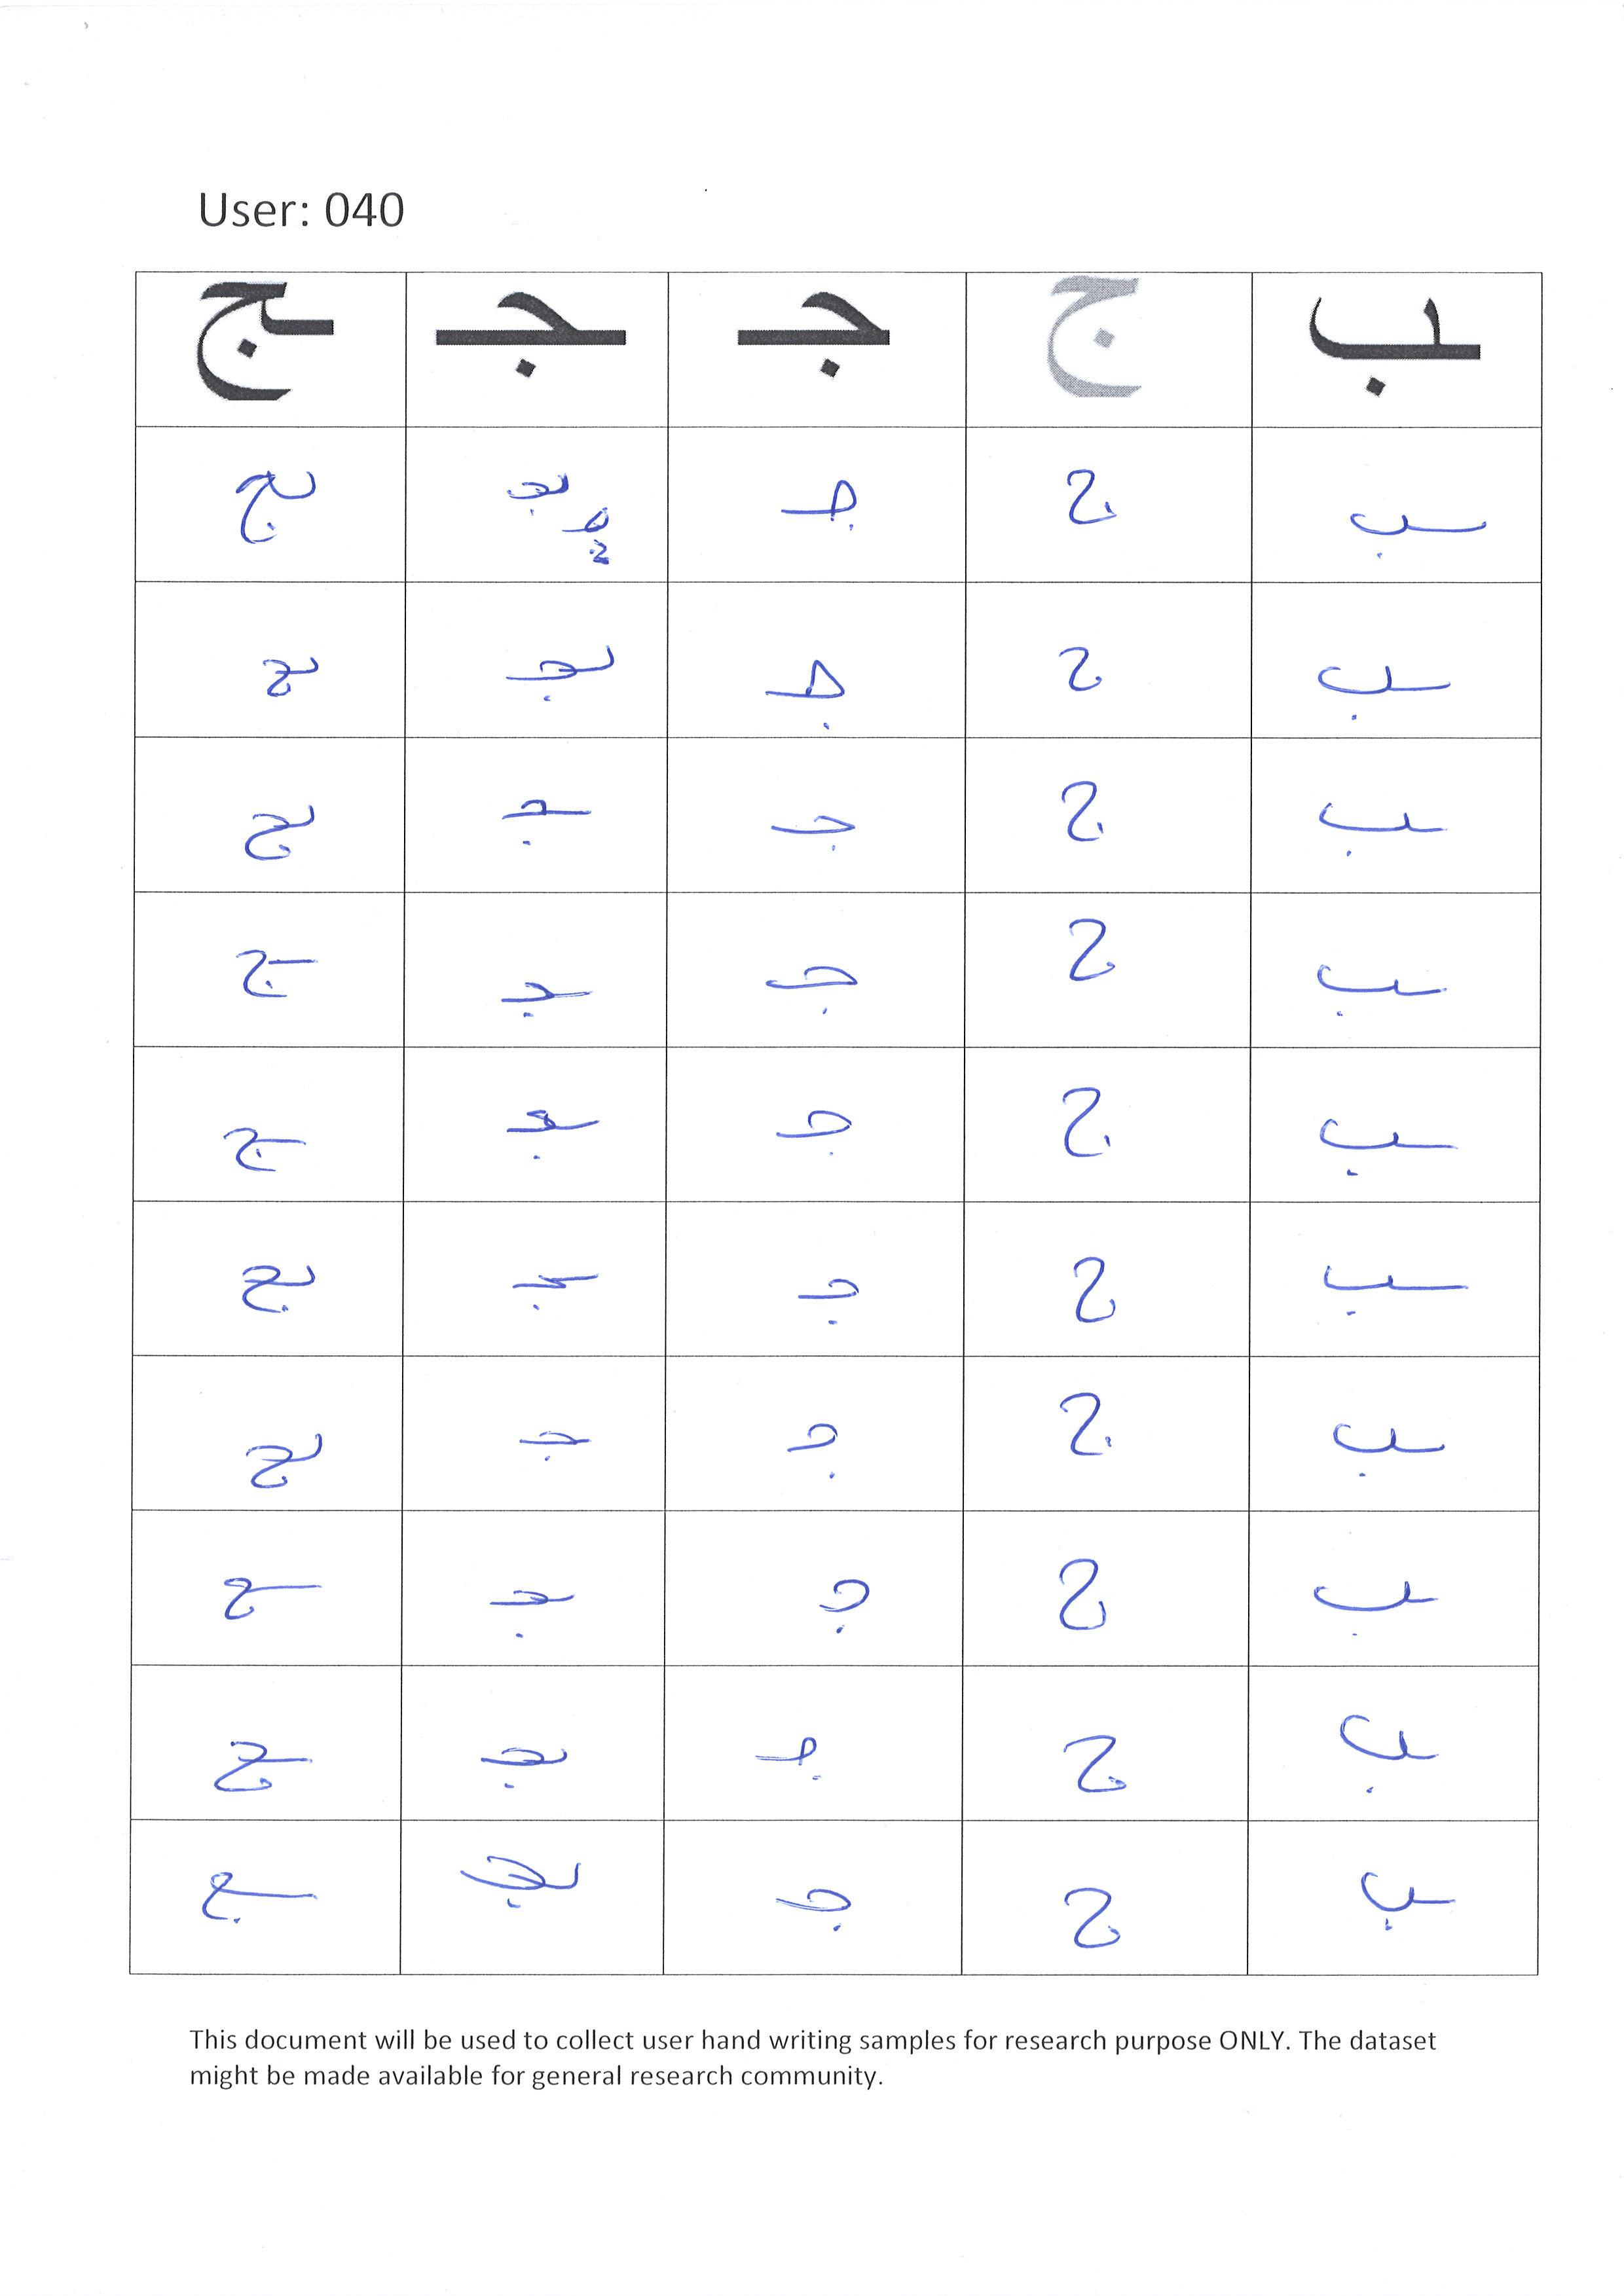 User: 040
ـب ج جـ ـجـ ـج
ـب ج جـ ـجـ ـج
ـب ج جـ ـجـ ـج
ـب ج جـ ـجـ ـج
ـب ج جـ ـجـ ـج
ـب ج جـ ـجـ ـج
ـب ج جـ ـجـ ـج
ـب ج جـ ـجـ ـج
ـب ج جـ ـجـ ـج
ـب ج جـ ـجـ ـج
ـب ج جـ ـجـ ـج
This document will be used to collect user hand writing samples for research purpose ONLY. The dataset
might be made available for general research community.